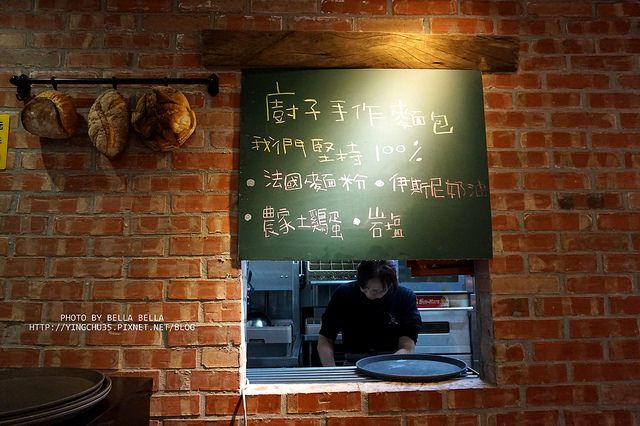 廚子手作麵包
我們堅持100%
•法國麵粉•伊斯尼奶油
•農家土鷄蛋•岩塩
PHOTO BY BELLA BELLA
HTTP://YINGCHU35.PIXNET.NET/BLOG